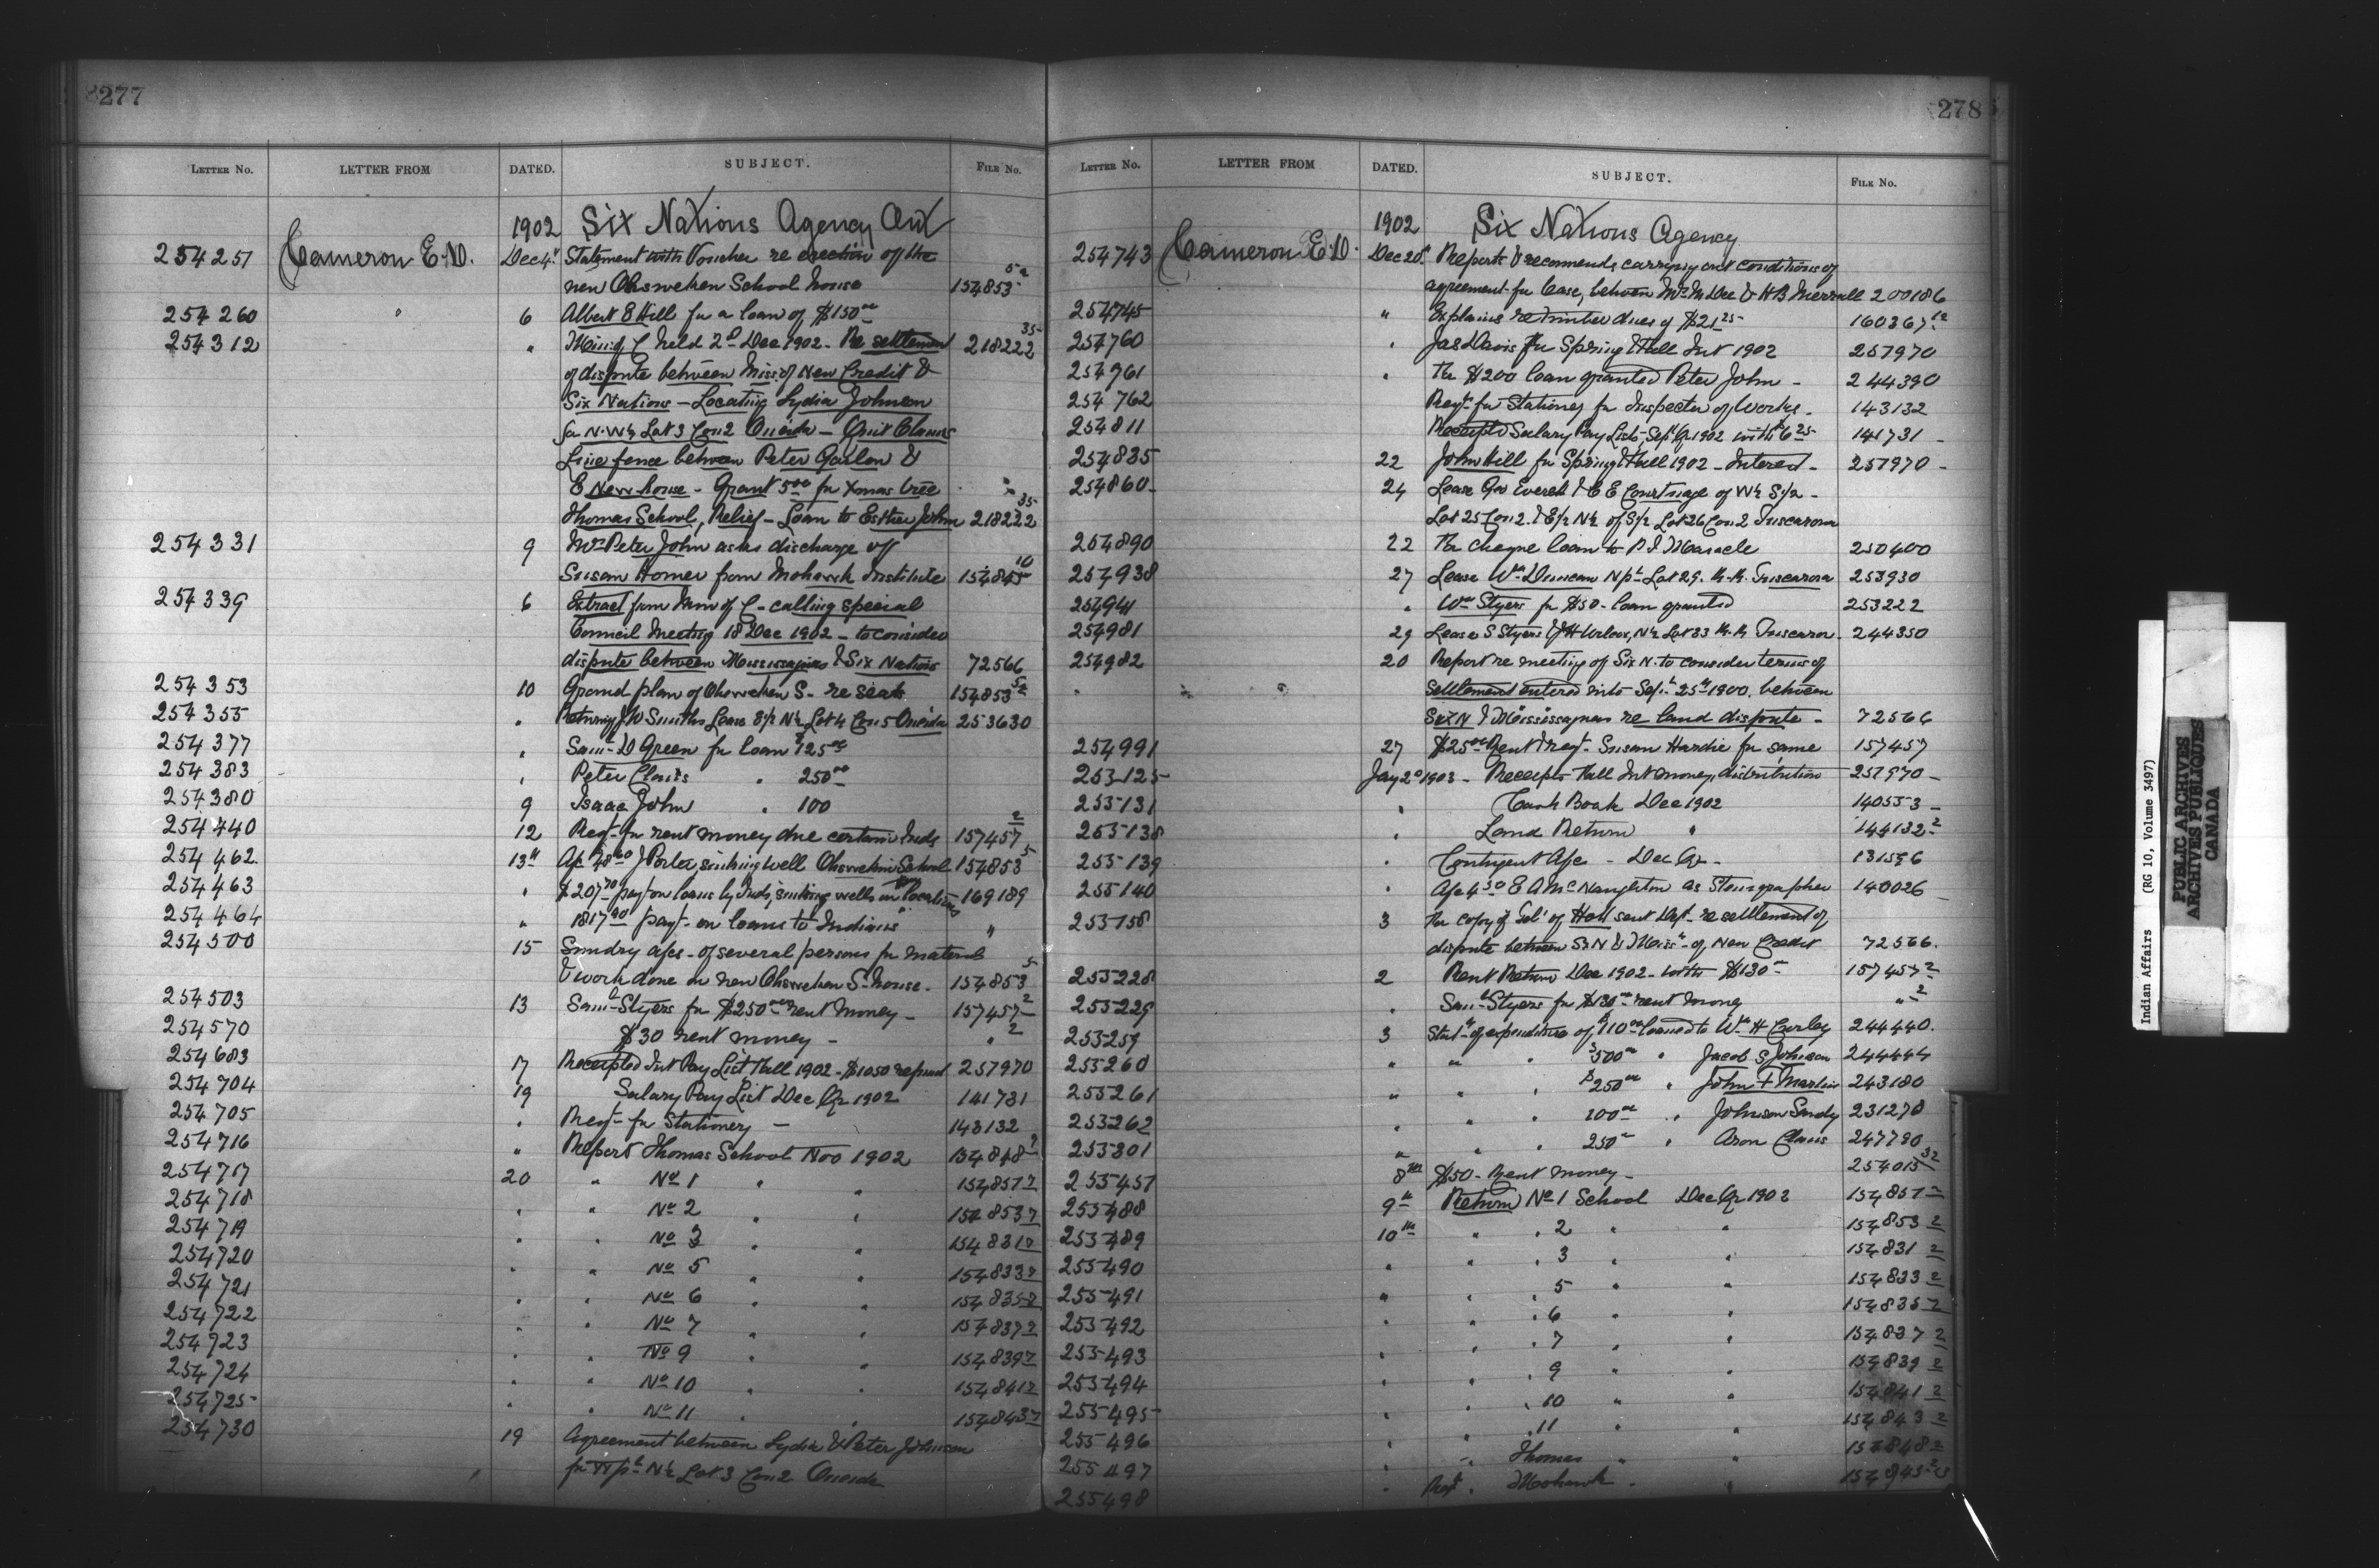 277
LETTER NO. LETTER FROM DATED. SUBJECT. FILE NO.
1902 Six Nations Agency Ont
254251 Cameron E.D. Dec 4" Statement with Voucher re erection of the
new Ohsweken School house 154853 5a
254260 " 6 Albert E Hill for a loan of $150 00
254312 " Min of C held 2d Dec 1902 - Re settlement 218222 35
of dispute between Miss. of New Credit &
Six Nations - Locating Lydia Johnson
for N.W¼ Lot 3 Con 2 Oneida - Quit Claims
Line fence between Peter Garlow &
E Newhouse - Grant 5 00 for Xmas tree
Thomas School, Relief - Loan to Esther John 218222 35
254331 9 Mrs Peter John asks discharge of
Susan Homer from Mohawk Institute 154845 10
254339 6 Extract from Min of C - calling special
Council Meeting 18 Dec 1902 - to consider
dispute between Mississaguas & Six Nations 72566
254353 10 Ground plan of Ohsweken S. re seats 154853 5a
254355 " Returning J W Smiths Lease S½ N½ Lot 4 Con 5 Oneida 253630
254377 " Saml D Green for loan $125 00
254383 " Peter Claus " 250 00
254380 9 Isaac John " 100
254440 12 Reqt for rent money due certain Inds 157457 2
254462 13" J Porter sinking well Ohsweken School 154853 5
254463 " $207 70 payt on loans by Inds, sinking wells on locations 169189
254464 " 1817 90 payt on loans to Indians "
254500 15 Sundry a/cs - of several persons for material
& work done on new Ohsweken S. house - 154853 5
254503 13 Saml Styers for $250 00 rent money - 157457 2
254570 $30 rent money - " 2
254683 17 Receipted Int Pay List Fall 1902 - $1050 refund 257970
254704 19 Salary Pay List Dec Qr 1902 141731
254705 " Reqt for Stationery - 143132
254716 " Report Thomas School Nov 1902 154848 2
254717 20 " No 1 " " 154851 2
254718 " " No 2 " " 154853 2
254719 " " No 3 " " 154831 2
254720 " " No 5 " " 154833 2
254721 " " No 6 " " 154835 2
254722 " " No 7 " " 154837 2
254723 " " No 9 " " 154839 2
254724 " " No 10 " " 154841 2
254725 " " No 11 " " 154843 2
254730 19 Agreement between Lydia & Peter Johnson
for N½ Lot 3 Con 2 Oneida
278
LETTER NO. LETTER FROM DATED. SUBJECT. FILE NO.
1902 Six Nations Agency
254743 Cameron E.D. Dec 20" Reports & recommends carrying out conditions of
agreement for lease, between Mrs M Dee & H B Merrall 200186
254745 " Explains re timber dues of $21 25 160367 12
254760 " Jas Davis for Spring & Fall Int 1902 257970
254761 " The $200 loan granted Peter John - 244390
254762 Reqt for Stationery for Inspector of Works - 143132
254811 Receipted Salary Pay Lists, Sept Qr 1902 with $6 25 141731 -
254835 22 John Hill for Spring & Fall 1902 - Interest - 257970 -
254860 - 24 Lease Geo Everett & C E Courtnage of W½ S½ -
Lot 25 Con 2. & E½ N½ of S½ Lot 26 Con 2 Tuscarora
254890 22 The cheque loan to P J Maracle 250400
254938 27 Lease Wm Duncan N pt Lot 29. Tuscarora 253930
254941 " Wm Styers for $50 - loan granted 253222
254981 29 Lease S Styers & J H Wilcox, N½ Lot 33 Tuscarora 244350
254982 20 Report re meeting of Six N. to consider terms of
settlement entered into Sept 25th 1900. between
Six N & Mississaguas re land dispute - 72566
254991 27 $25 00 Rent & reqt Susan Hardie for same 157457
255125 Jany 2d 1903 - Receipts Fall Int money, distribution 257970 -
255131 " Cash Book Dec 1902 140553 -
255138 " Land Return " 144132 2
255139 " Contingent A/c - Dec Qr - 131596
255140 " A/c 4 50 E A McNaughton as Stenographer 140026
255158 3 The copy of Tel of Hall sent Dept re settlement of
dispute between Six N & Miss. of New Credit 72566.
255228 2 Rent Return Dec 1902 - with $130 00 157457 2
255229 " Saml Styers for $130 00 rent money " 2
255259 3 Statt of expenditure of $110 00 loaned to Wm H Curley 244440.
255260 " " " $500 00 " Jacob S Johnson 244444
255261 " " " $250 00 " John F Martin 243180
255262 " " " 100 00 " Johnson Sandy 231278
255301 " " " 250 00 " Aron Claus 247790
255451 8th $50 - Rent money - 254015 32
255488 9th Return No 1 School Dec Qr 1902 154851 2
255489 10th " " 2 " " 154853 2
255490 " " " 3 " " 154831 2
255491 " " " 5 " " 154833 2
255492 " " " 6 " " 154835 2
255493 " " " 7 " " 154837 2
255494 " " " 9 " " 154839 2
255495 " " " 10 " " 154841 2
255496 " " " 11 " " 154843 2
255497 " " Thomas " " 154848 2
255498 " " Mohawk " "
Indian Affairs (RG 10, Volume 3497)
PUBLIC ARCHIVES
ARCHIVES PUBLIQUES
CANADA